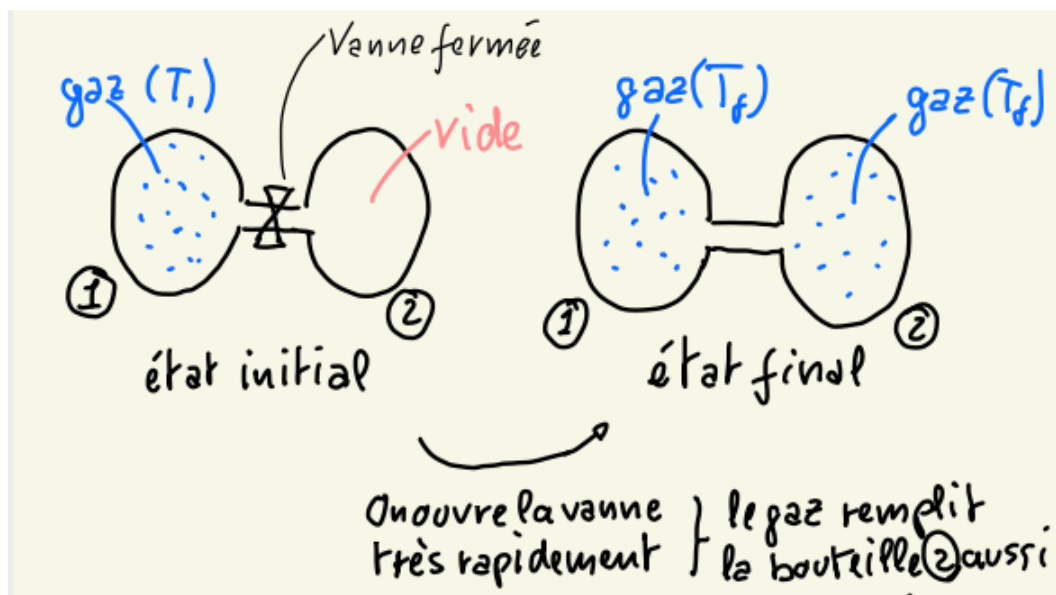 Vanne fermée
gaz (T₁)
vide
①
②
état initial
gaz(Tf)
gaz(Tf)
①
②
état final
On ouvre la vanne
très rapidement
le gaz remplit
la bouteille ② aussi